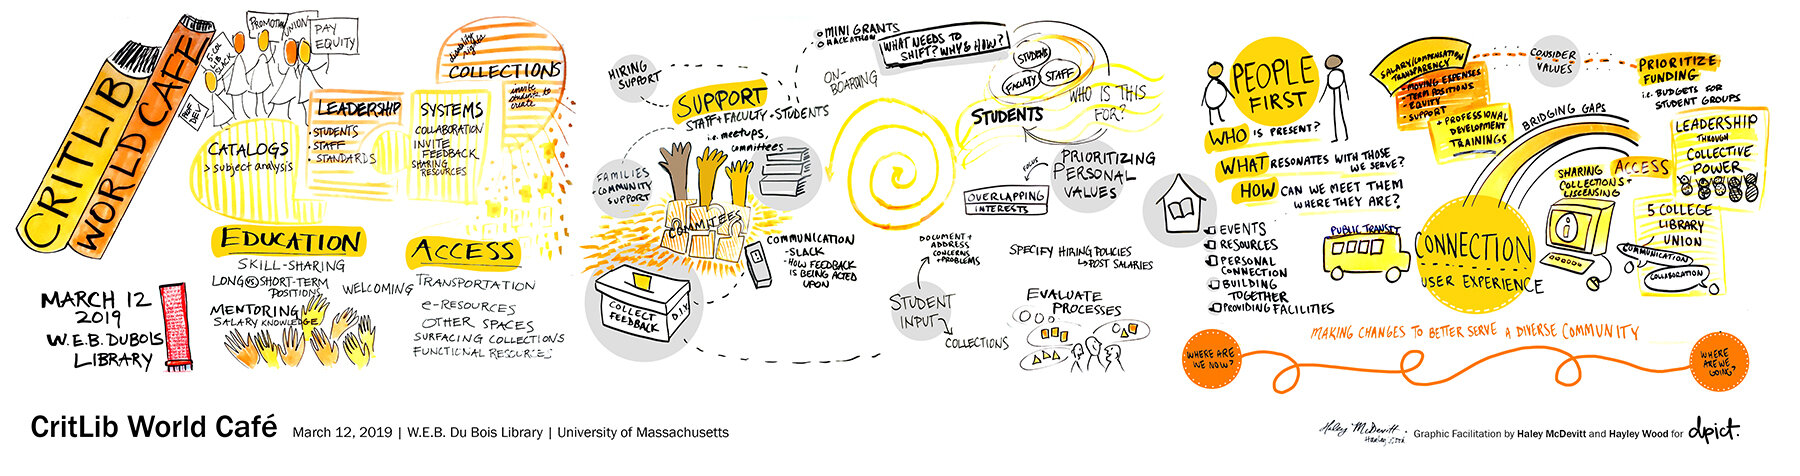 CRITLIB
WORLD CAFE
5-COL
LIB
SLACK
PROMOTION
UNION
PAY
EQUITY
disability
rights
COLLECTIONS
invite
students to
create
LEADERSHIP
• STUDENTS
• STAFF
• STANDARDS
SYSTEMS
COLLABORATION
INVITE
FEEDBACK
SHARING
RESOURCES
CATALOGS
> subject analysis
EDUCATION
SKILL-SHARING
LONG vs SHORT-TERM
POSITIONS
MENTORING
SALARY KNOWLEDGE
WELCOMING
ACCESS
TRANSPORTATION
e-RESOURCES
OTHER SPACES
SURFACING COLLECTIONS
FUNCTIONAL RESOURCES
MARCH 12
2019
W.E.B. DUBOIS
LIBRARY
HIRING
SUPPORT
SUPPORT
STAFF + FACULTY + STUDENTS
i.e. meetups,
committees
FAMILIES
- COMMUNITY
SUPPORT
COMMITTEES
COLLECT
FEEDBACK
D.I.V.
COMMUNICATION
- SLACK
- HOW FEEDBACK
IS BEING ACTED
UPON
MINI GRANTS
HACKATHON
ON-
BOARDING
WHAT NEEDS TO
SHIFT? WHY & HOW?
STUDENTS
FACULTY
STAFF
STUDENTS
WHO IS THIS
FOR?
PRIORITIZING
PERSONAL
VALUES
OVERLAPPING
INTERESTS
DOCUMENT +
ADDRESS
CONCERNS
+ PROBLEMS
STUDENT
INPUT
COLLECTIONS
SPECIFY HIRING POLICIES
↳ POST SALARIES
EVALUATE
PROCESSES
PEOPLE
FIRST
WHO IS PRESENT?
WHAT RESONATES WITH THOSE
WE SERVE?
HOW CAN WE MEET THEM
WHERE THEY ARE?
EVENTS
RESOURCES
PERSONAL
CONNECTION
BUILDING
TOGETHER
PROVIDING FACILITIES
PUBLIC TRANSIT
SALARY/COMPENSATION
TRANSPARENCY
- MOVING EXPENSES
- TERM POSITIONS
- EQUITY
- SUPPORT
+ PROFESSIONAL
DEVELOPMENT
TRAININGS
CONSIDER
VALUES
BRIDGING GAPS
CONNECTION
USER EXPERIENCE
SHARING
COLLECTIONS +
LISCENSING
ACCESS
i
PRIORITIZE
FUNDING
i.e. BUDGETS FOR
STUDENT GROUPS
LEADERSHIP
THROUGH
COLLECTIVE
POWER
5 COLLEGE
LIBRARY
UNION
COMMUNICATION
COLLABORATION
MAKING CHANGES TO BETTER SERVE A DIVERSE COMMUNITY
WHERE ARE
WE NOW?
WHERE
ARE WE
GOING?
CritLib World Café March 12, 2019 | W.E.B. Du Bois Library | University of Massachusetts
Haley McDevitt
Hayley Wood
Graphic Facilitation by Haley McDevitt and Hayley Wood for dpict.